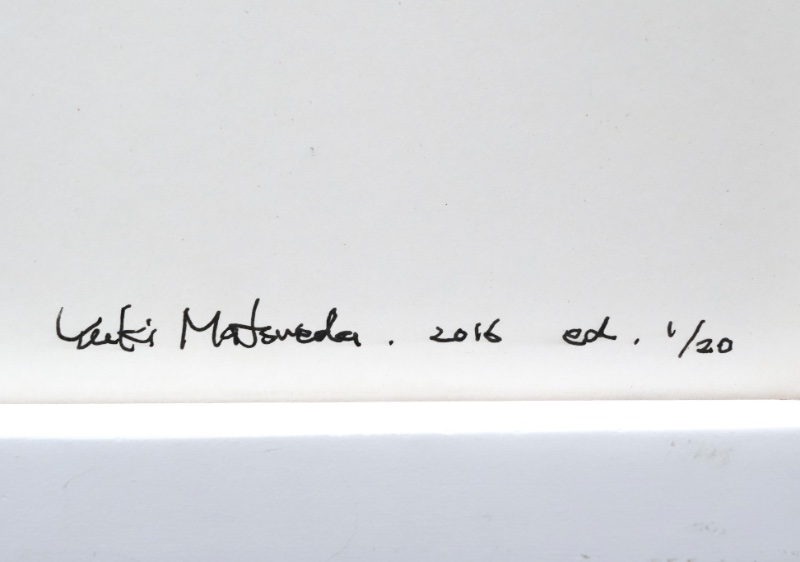 Yuki Matsueda. 2016 ed. 1/20